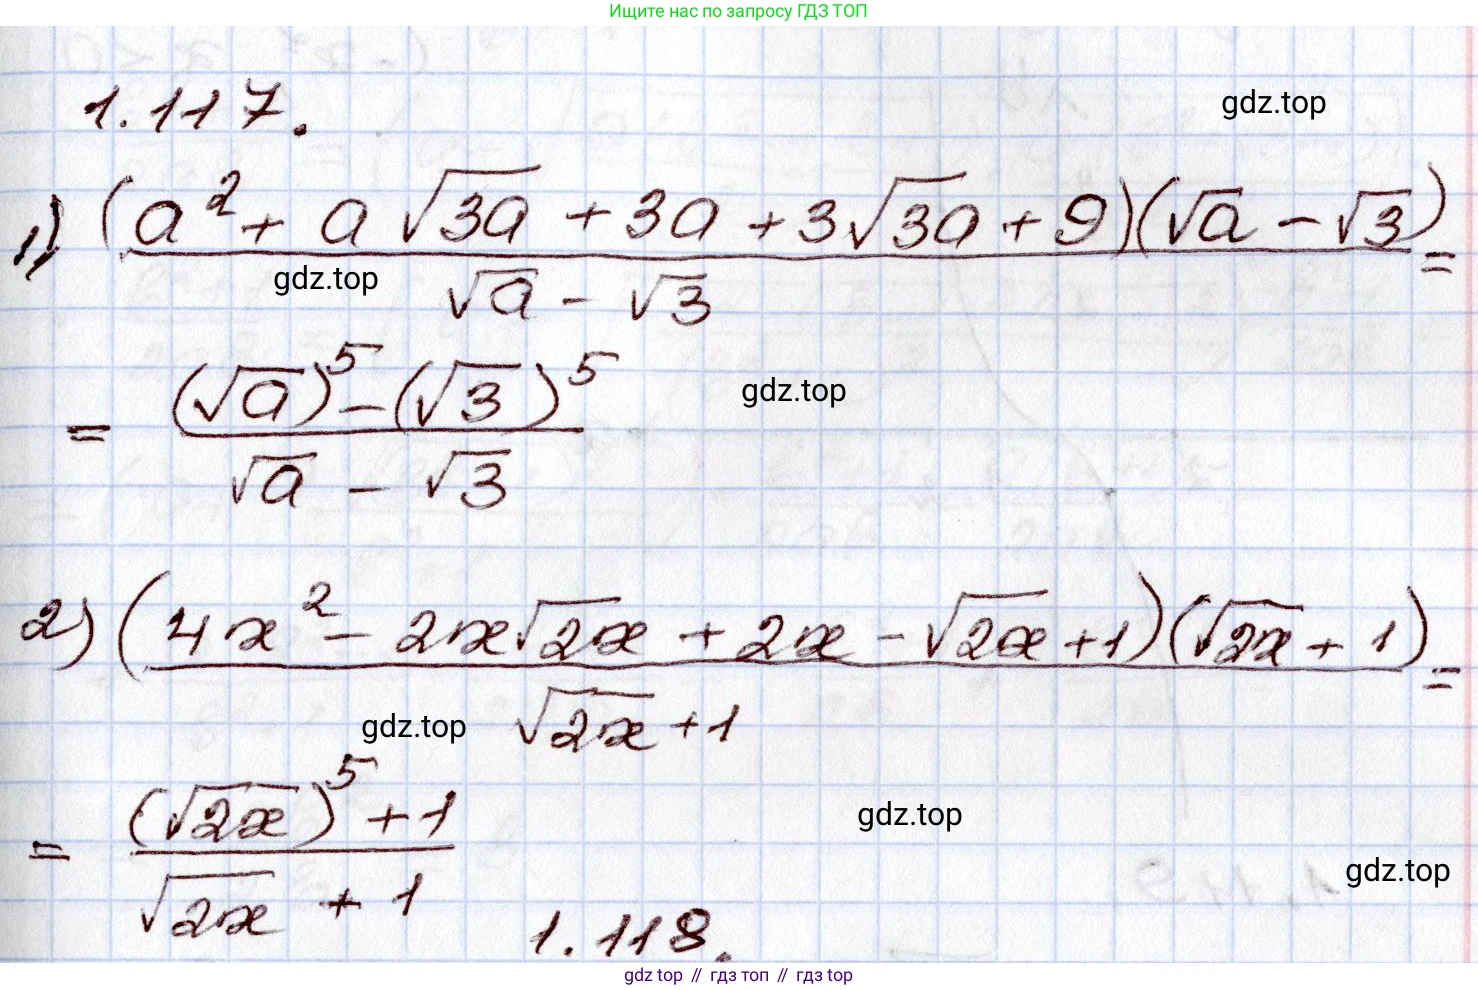 Ищите нас по запросу ГДЗ ТОП
1.117.
gdz.top
1) (a² + a√3a + 3a + 3√3a + 9)(√a − √3) =
gdz.top
√a − √3
= (√a)⁵ − (√3)⁵
gdz.top
√a − √3
2) (4x² − 2x√2x + 2x − √2x + 1)(√2x + 1) =
gdz.top
√2x + 1
= (√2x)⁵ + 1
gdz.top
√2x + 1
gdz.top
1.118.
gdz top // гдз топ // gdz top